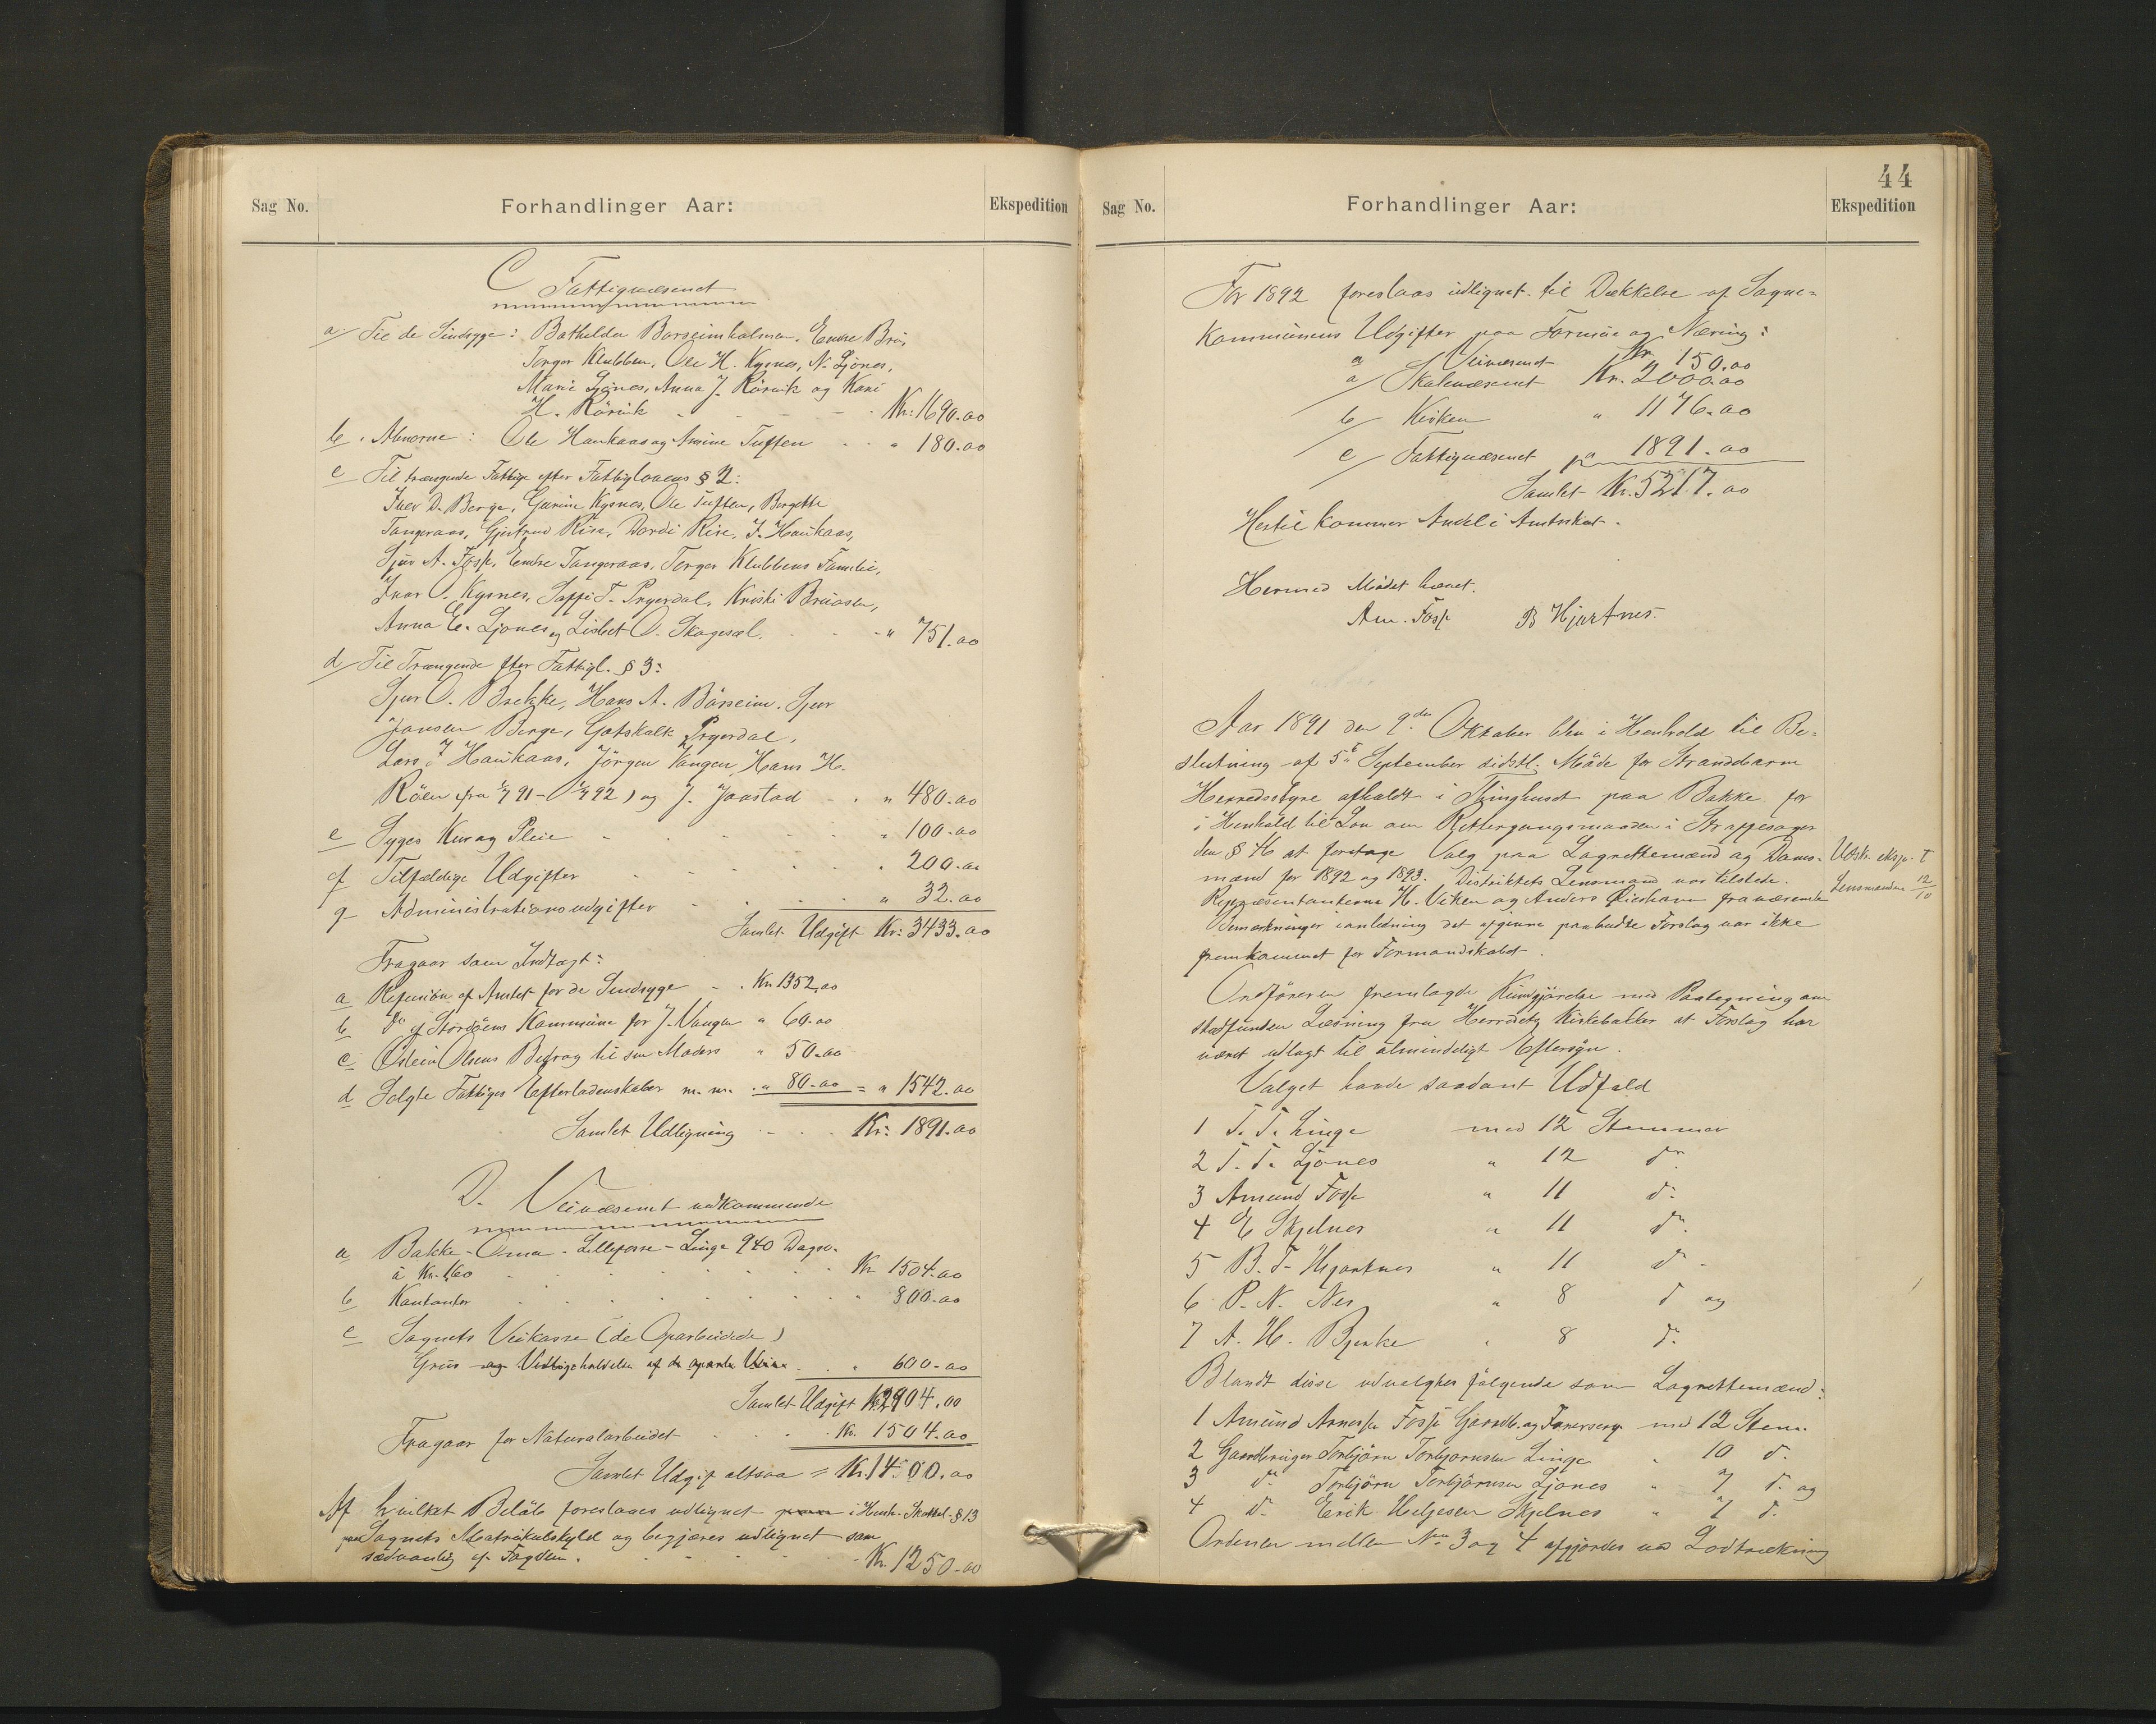 Sag No.
Forhandlinger Aar:
Ekspedition
C Fattigvæsenet
a/ Til de Sindsyge: Bothilda Børseimholmen, Endre Brù,
Torger Klubben, Ole H. Kysnes, N. Ljones,
Mari Ljones, Anna J. Rörvik og Kari
H. Rörvik - - - Kr. 1690.00
b. Abnorme: Ole Haukaas og Amine Tuften - - " 180.00
c Til trængende Fattige efter Fattiglovens § 2:
Iver D. Berge, Gurine Kysnes, Ole Tuften, Bergitte
Tangeraas, Gjertrud Risa, Dordi Rise, J. Haukaas,
Sjur A. Fosse, Endre Tangeraas, Torger Klubbens Familie,
Ivar O. Kysnes, T. Prygerdal, Kristi Bruåsen,
Anna E. Ljones og Lisbet O. Skogesæl. - - " 751.00
d/ Til Trængende efter Fattigl. § 3:
Sjur O. Brekke, Hans A. Börseim, Sjur
Jansen Berge, Gotskalk Prygerdal,
Lars J Haukaas, Jörgen Vangen, Hans H.
Röen (fra 1/7 91 - 1/7 92) og J. Jaastad - - " 480.00
e Syges Kur og Pleie - - - " 100.00
f Tilfældige Udgifter - - - " 200.00
g Administrationsudgifter - - - " 32.00
Samlet Udgift Kr: 3433.00
Fragaar som Indtægt:
a Refusion af Amtet for de Sindsyge - - Kr. 1352.00
b Do af Stordöens Kommune for J. Vangen " 60.00
c Östein Olsens Bidrag til sin Moders " 50.00
d Solgte Fattiges Efterladenskaber m. m. " 80.00 = " 1542.00
Samlet Udligning - - - Kr. 1891.00
D. Veivæsenet vedkommende
a Bakke - Oma - Lillefosse - Linge 940 Dagv.
à Kr. 1,60 - - - Kr. 1504.00
b Kontanter - - - " 800.00
c Sognets Veikasse (de Oparbeidede)
Grus og Vedligeholdelse af de oparb. Veie - - " 600.00
Samlet Udgift Kr. 2904.00
Fragaar for Naturalarbeidet - - - Kr. 1504.00
Samlet Udgift altsaa = Kr. 1400.00
Af hvilket Beløb foreslaaes udlignet i Henh. Skattel. § 13
paa Sognets Matrikulskyld og begjæres udlignet som
sædvanlig af Fogden. - - - Kr. 1250.00
44
Sag No.
Forhandlinger Aar:
Ekspedition
For 1892 foreslaas udlignet til Dækkelse af Sogne-
kommunens Udgifter paa Formue og Næring:
a Veivæsenet Kr. 150.00
a/ Skolevæsenet Kr. 2000.00
b/ Kirken " 1176.00
c/ Fattigvæsenet " 1891.00
Samlet Kr. 5217.00
Hertil kommer Andel i Amtsskat.
Hermed Mödet hævet.
Am. Fosse B Hjartnes.
Aar 1891 den 9de Oktober blev i Henhold til Be-
slutning af 5te September sidstl. Möde for Strandebarm
Herredsstyre afholdt i Thinghuset paa Bakke for
i Henhold til Lov om Rettergangsmaaden i Straffesager
den § 46 at foretage Valg paa Lagrettemænd og Doms-
mænd for 1892 og 1893. Distriktets Lensmand var tilstede.
Udsk. eksp. t
Lensmanden 12/10
Repræsentanterne H. Viken og Anders fraværende
Bemærkninger i anledning det afgivne paabudte Forslag var ikke
fremkommet for Formandskabet.
Ordföreren fremlagde Kundgjörelse med Paategning om
stedfunden Læsning fra Herredets Kirkebakker at Forslag har
været udlagt til almindeligt Eftersyn.
Valget havde saadant Udfald
1 T. T. Linge med 12 Stemmer
2 T. T. Ljones " 12 do
3 Amund Fosse " 11 do
4 E Skjelnes " 11 do
5 B. T. Hjartnes " 11 do
6 P. N. Nes " 8 do og
7 A. H. Bjerke " 8 do
Blandt disse udvalgtes fölgende som Lagrettemænd:
1 Amund Arnesen Fosse Gaardb. og med 12 Stem.
2 Gaardbruger Torbjörn Torbjörnsen Linge " 10 do
3 do Torbjörn Torbjörnsen Ljones " 7 do og
4 do Erik Helgesen Skjelnes " 7 do
Ordenen mellem No 3 og 4 afgjordes ved Lodtrækning